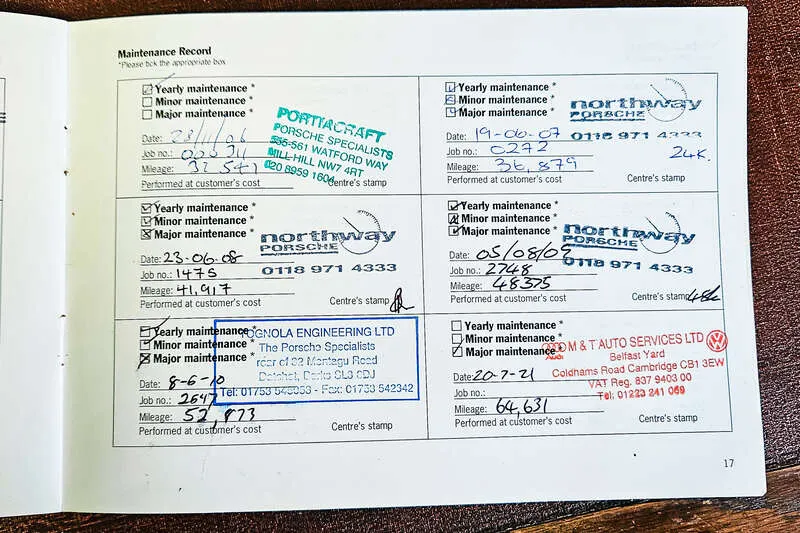 Maintenance Record
*Please tick the appropriate box
Yearly maintenance *
Minor maintenance *
Major maintenance *
Date: 28/11/06
Job no.:
Mileage: 32,541
Performed at customer's cost
Centre's stamp
PORTIACRAFT
PORSCHE SPECIALISTS
555-561 WATFORD WAY
MILL-HILL NW7 4RT
020 8959 1604
Yearly maintenance *
Minor maintenance *
Major maintenance *
Date: 19-06-07
Job no.: 0272
Mileage: 36,879
Performed at customer's cost
Centre's stamp
northway
PORSCHE
0118 971 4333
24K.
Yearly maintenance *
Minor maintenance *
Major maintenance *
Date: 23-06-08
Job no.: 1475
Mileage: 41,917
Performed at customer's cost
Centre's stamp
northway
PORSCHE
0118 971 4333
Yearly maintenance *
Minor maintenance *
Major maintenance *
Date: 05/08/09
Job no.: 2748
Mileage: 48375
Performed at customer's cost
Centre's stamp
northway
PORSCHE
0118 971 4333
48k
Yearly maintenance *
Minor maintenance *
Major maintenance *
Date: 8-6-10
Job no.: 2647
Mileage: 52,873
Performed at customer's cost
Centre's stamp
OGNOLA ENGINEERING LTD
The Porsche Specialists
rear of 32 Montagu Road
Datchet, Berks SL3 9DJ
Tel: 01753 545053 - Fax: 01753 542342
Yearly maintenance *
Minor maintenance *
Major maintenance *
Date: 20-7-21
Job no.:
Mileage: 64,631
Performed at customer's cost
Centre's stamp
M & T AUTO SERVICES LTD
Audi
Belfast Yard
Coldhams Road Cambridge CB1 3EW
VAT Reg. 837 9403 00
Tel; 01223 241 069
17